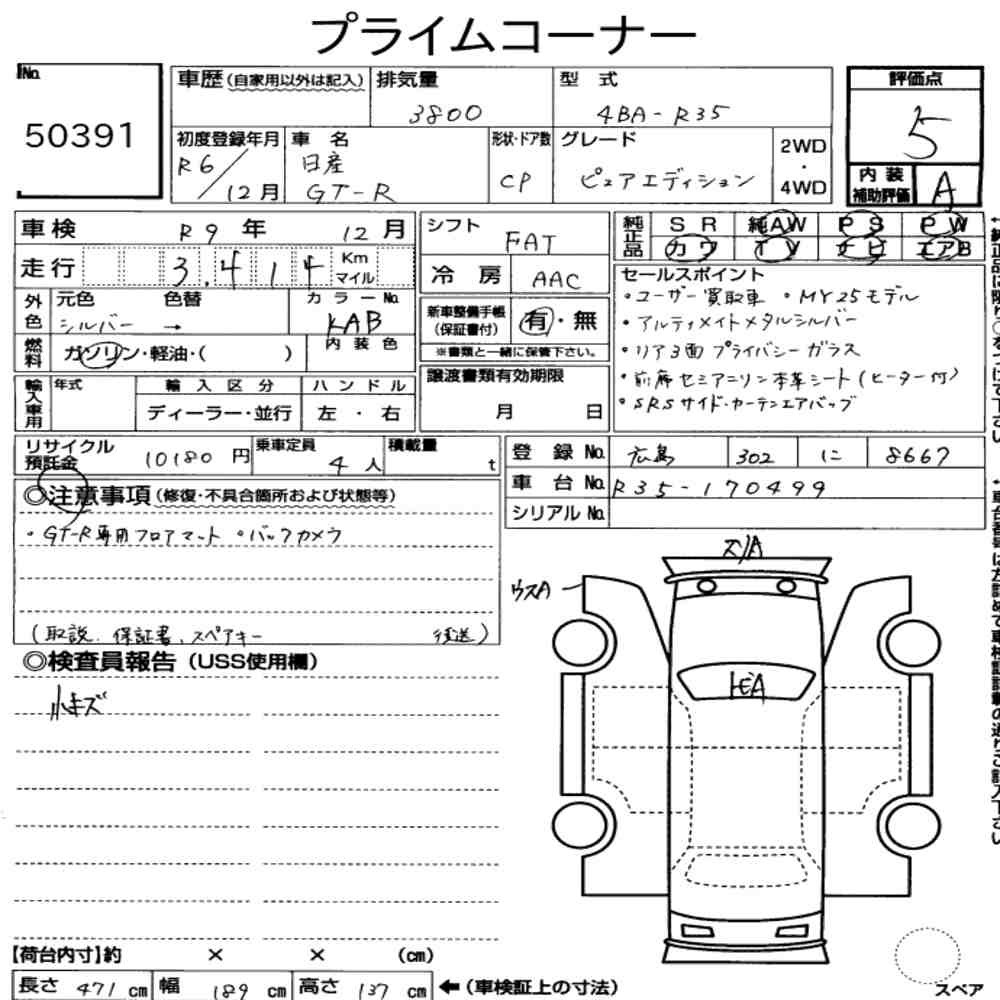 プライムコーナー
No.
50391
車歴(自家用以外は記入)
排気量
3800
型 式
4BA-R35
評価点
5
初度登録年月
R6/12月
車 名
日産
GT-R
形状・ドア数
CP
グレード
ピュアエディション
2WD
・
4WD
内装補助評価
A
車検 R9年 12月
走行 3,414 Km マイル
外色
元色 色替
シルバー →
カラーNo.
KAB
燃料
ガソリン・軽油・( )
内装色
輸入車用
年式
輸入区分
ディーラー・並行
ハンドル
左・右
シフト FAT
冷房 AAC
新車整備手帳(保証書付) 有・無
※書類と一緒に保管下さい。
譲渡書類有効期限
月 日
純正品
SR 純AW PS PW
カワ TV ナビ エアB
セールスポイント
・ユーザー買取車 ・MY25モデル
・アルティメイトメタルシルバー
・リア3面プライバシーガラス
・前席セミアニリン本革シート(ヒーター付)
・SRSサイド・カーテンエアバッグ
リサイクル預託金 10180円
乗車定員 4人
積載量 t
登録No. 広島 302 に 8667
車台No. R35-170499
シリアルNo.
◎注意事項(修復・不具合箇所および状態等)
・GT-R専用フロアマット ・バックカメラ
(取説、保証書、スペアキー 後送)
◎検査員報告(USS使用欄)
小キズ
ウスA
トビA
【荷台内寸】約 × × (cm)
長さ 471 cm 幅 189 cm 高さ 137 cm ←(車検証上の寸法)
スペア